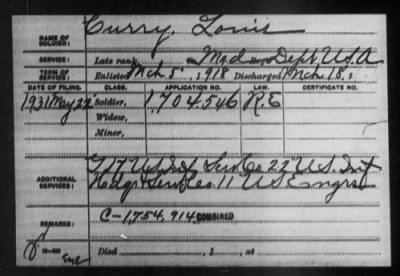 NAME OF SOLDIER: Curry, Louis
SERVICE: Late rank, Co. Med Regt Dept. U.S.A
TERM OF SERVICE: Enlisted Mch 5, 1918 Discharged Mch 18, 1
DATE OF FILING. CLASS. APPLICATION NO. LAW. CERTIFICATE NO.
1931 May 22 Soldier, 1,704,546 R.E
Widow,
Minor,
ADDITIONAL SERVICES: U.S. Inf Serv Co. 22 U.S. Inf
Hdqrs & Serv Co. 11 U.S. Engrs
REMARKS: C-1,754,914 COMBINED
Died , 1 , at